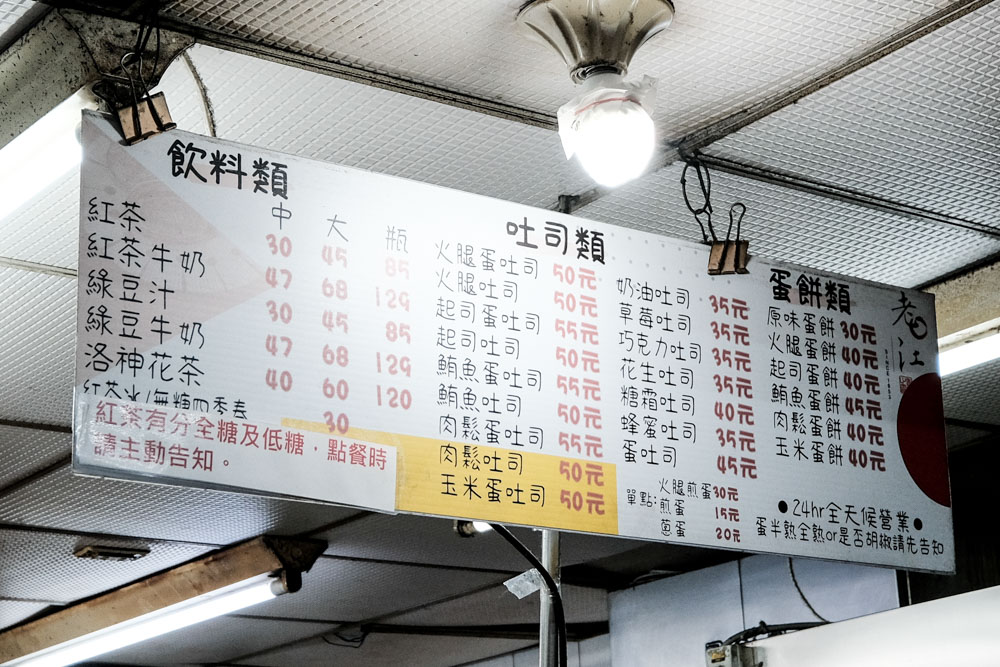 飲料類
中 大 瓶
紅茶 30 45 85
紅茶牛奶 47 68 129
綠豆汁 30 45 85
綠豆牛奶 47 68 129
洛神花茶 40 60 120
紅茶冰/無糖四季春 30
紅茶有分全糖及低糖,點餐時
請主動告知。
吐司類
火腿蛋吐司 50元
火腿吐司 50元
起司蛋吐司 55元
起司吐司 50元
鮪魚蛋吐司 55元
鮪魚吐司 50元
肉鬆蛋吐司 55元
肉鬆吐司 50元
玉米蛋吐司 50元
奶油吐司 35元
草莓吐司 35元
巧克力吐司 35元
花生吐司 35元
糖霜吐司 40元
蜂蜜吐司 35元
蛋吐司 45元
火腿煎蛋 30元
單點:煎蛋 15元
蔥蛋 20元
蛋餅類
原味蛋餅 30元
火腿蛋餅 40元
起司蛋餅 40元
鮪魚蛋餅 45元
肉鬆蛋餅 40元
玉米蛋餅 40元
老江
SINCE1953
●24hr全天候營業●
蛋半熟全熟or是否胡椒請先告知